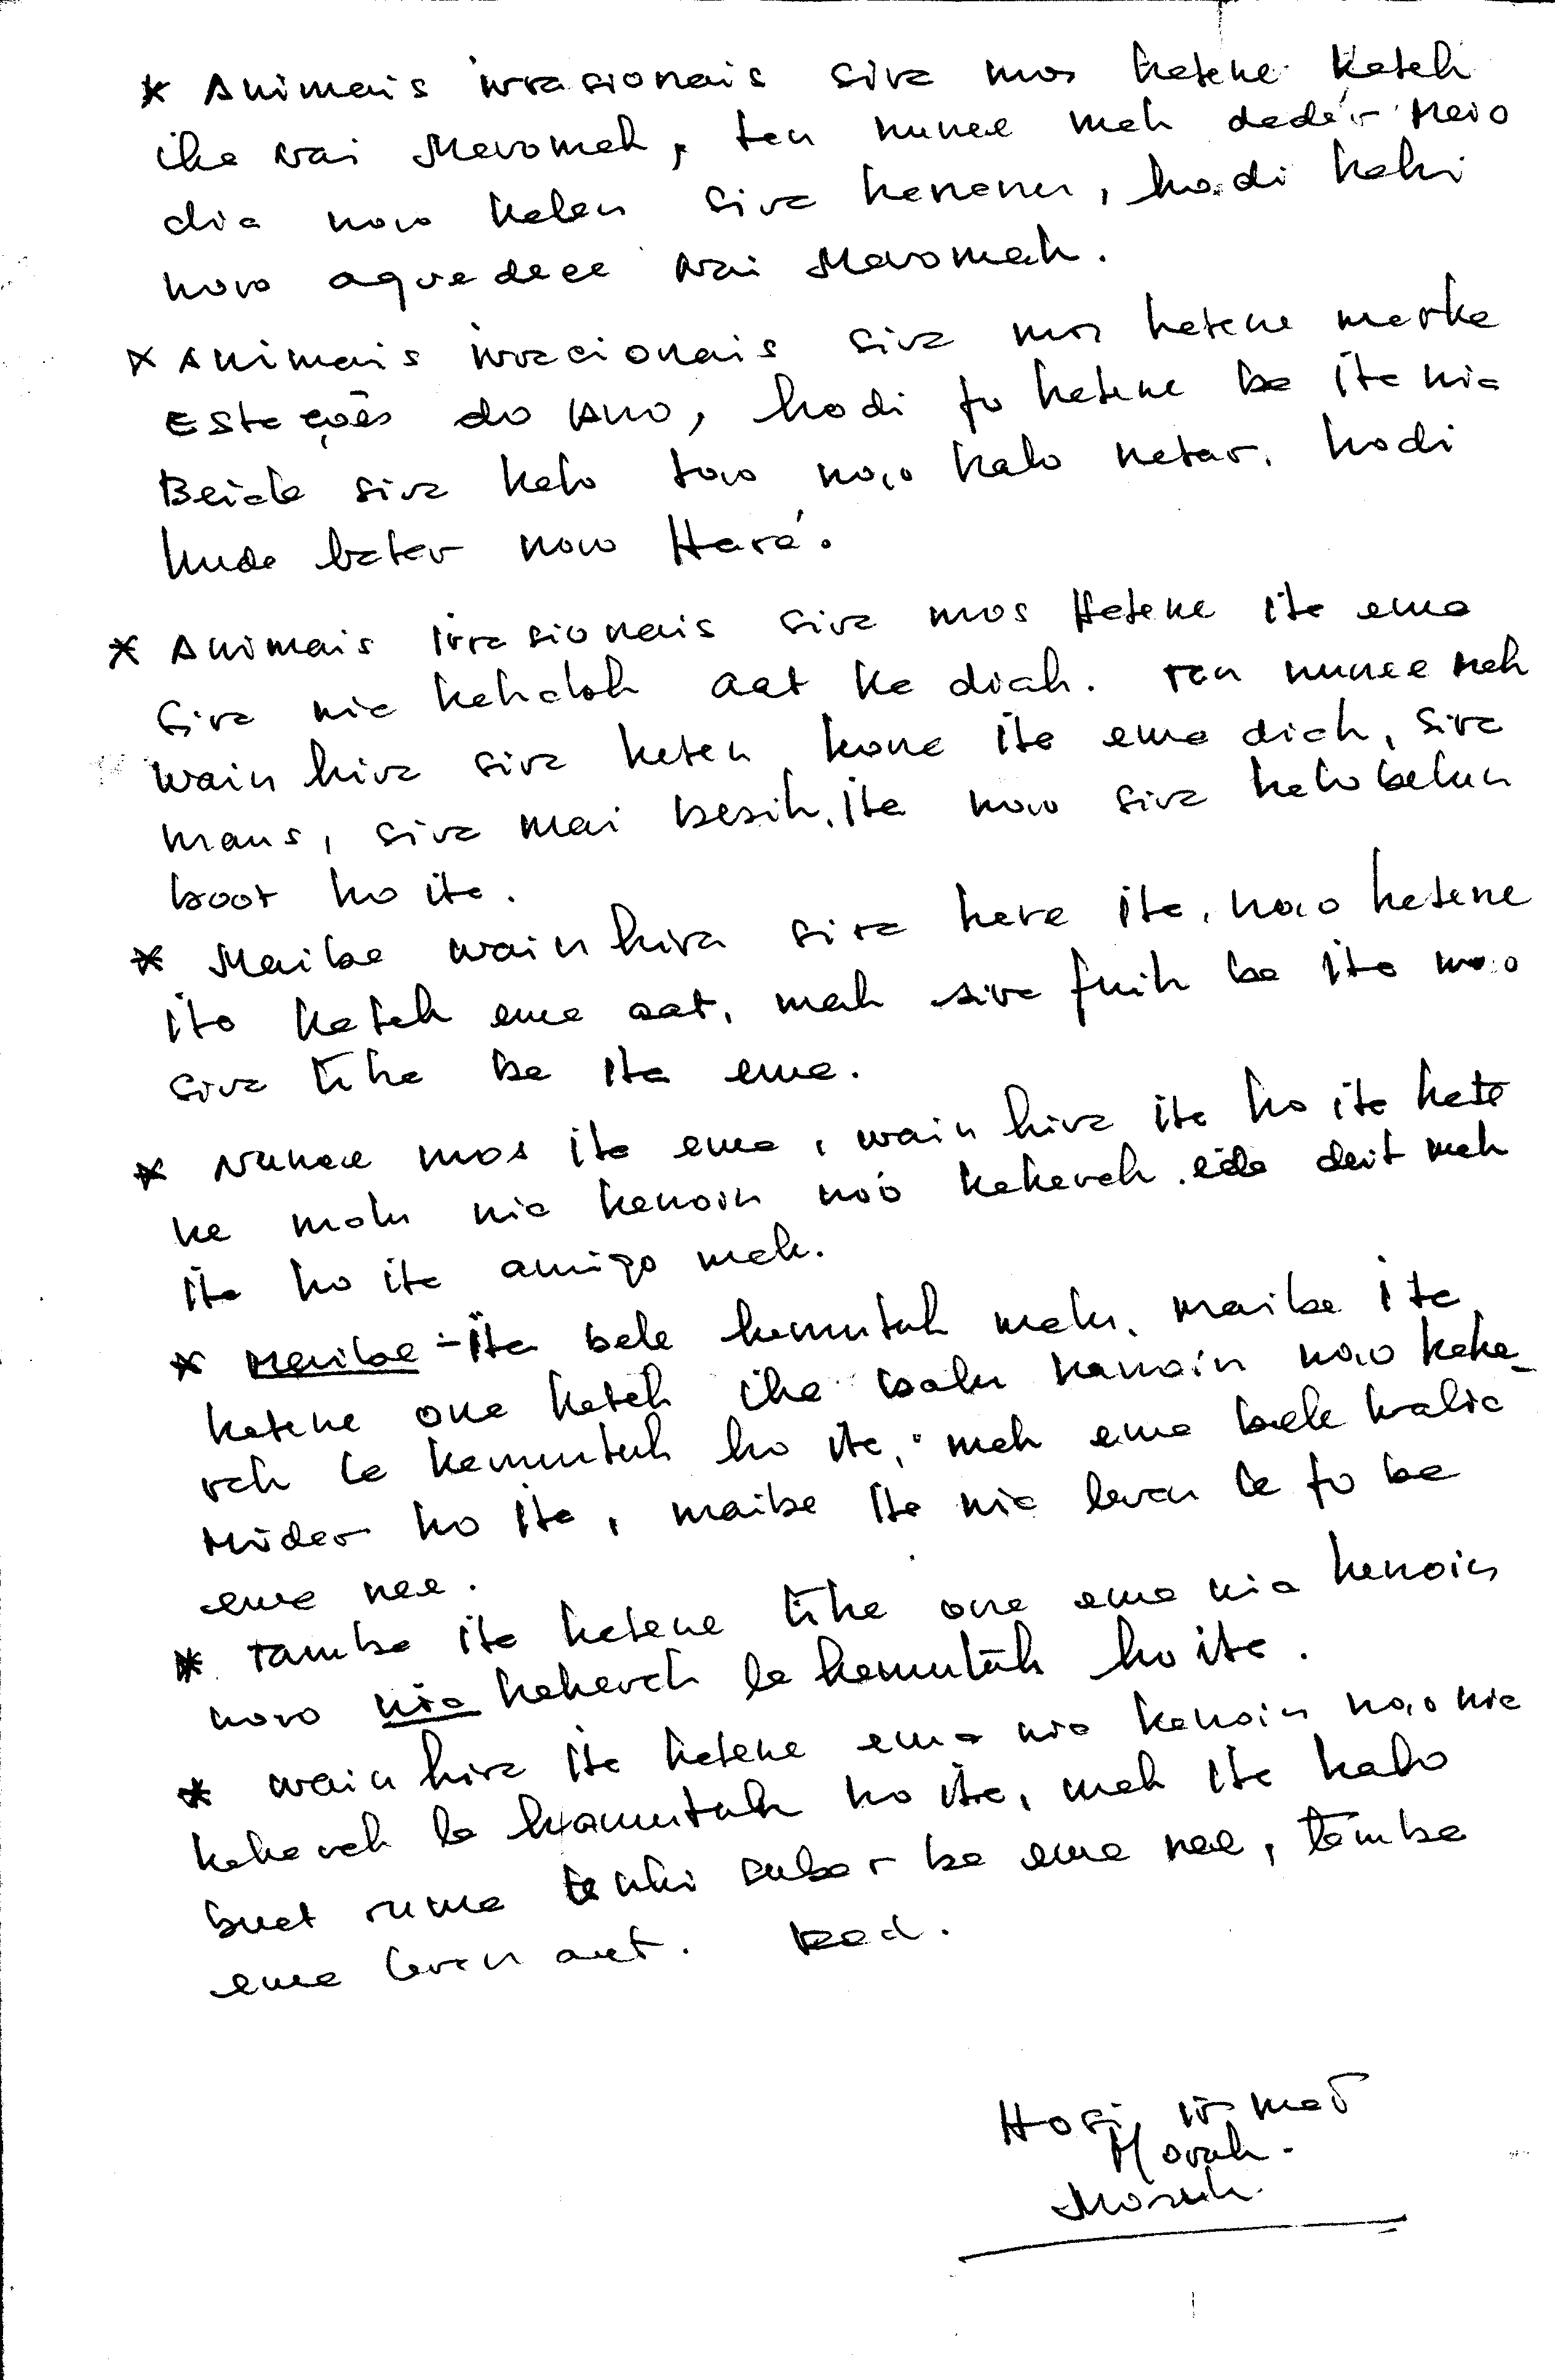 * Animais irrasionais sira mos hatene katak
iha Nai Maromak, tan nunee mak dadér Meio
dia noio kalan sira hananu, hodi hahi
noio aguedece Nai Maromak.
* Animais irracionais sira mos hatene marka
Estações do Ano, hodi fo hatene ba ita nia
Beiala sira halo tоio noio halo natar, hodi
kuda batar noio Haré.
* Animais irrasionais sira mos Hatene ita ema
sira nia hahalok aat ka diak. Tan nunee mak
wainhira sira haten kona ita ema diak, sira
maus, sira mai besik ita noio sira halo belun
boot ho ita.
* Maibe wainhira sira hare ita, noio hatene
ita katak ema aat, mak sira fuik ba ita noio
sira tiha ba ita ema.
* Nunee mos ita ema, wainhira ita ho ita hate
ne malu nia hanoin noio hakarak ida deit mak
ita ho ita amigo mak.
* Maibe - Ita bele hamutuk malu, maibe ita
hatene ona katak iha balu hanoin noio haka-
rak la hamutuk ho ita, mak ema bele halia
Mider ho ita, maibe ita nia laran la fo ba
ema nee.
* Tamba ita hatene tiha ona ema nia hanoin
noio nia hakarak la hamutuk ho ita.
* wainhira ita hatene ema nia hanoin noio nia
hakarak la hamutuk ho ita, mak ita halo
buat ruma tenki cuba r ba ema nee, tamba
ema laran aat.
Hosi
Moruk.